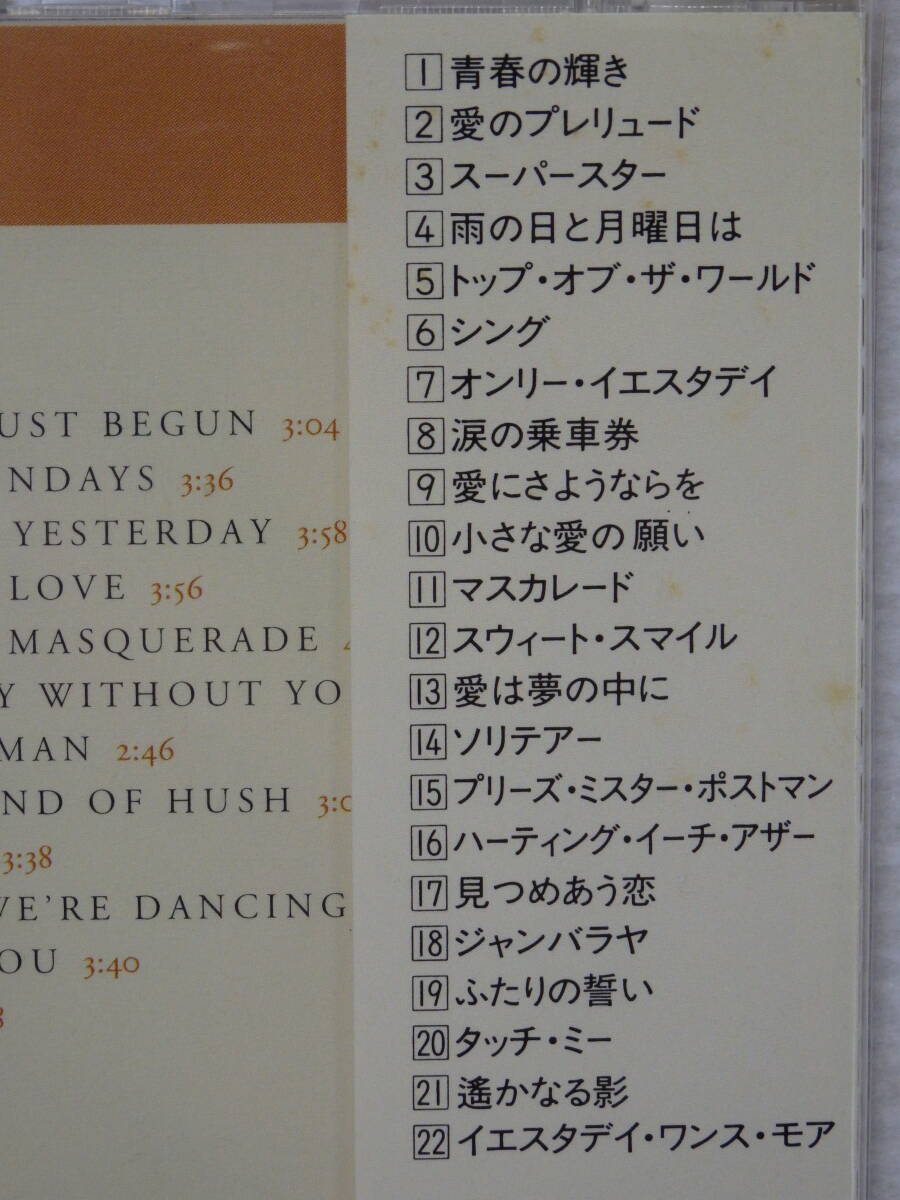 UST BEGUN 3:04
NDAYS 3:36
YESTERDAY 3:58
LOVE 3:56
MASQUERADE
Y WITHOUT YO
MAN 2:46
ND OF HUSH 3:0
3:38
WE'RE DANCING
OU 3:40
8
1 青春の輝き
2 愛のプレリュード
3 スーパースター
4 雨の日と月曜日は
5 トップ・オブ・ザ・ワールド
6 シング
7 オンリー・イエスタデイ
8 涙の乗車券
9 愛にさようならを
10 小さな愛の願い
11 マスカレード
12 スウィート・スマイル
13 愛は夢の中に
14 ソリテアー
15 プリーズ・ミスター・ポストマン
16 ハーティング・イーチ・アザー
17 見つめあう恋
18 ジャンバラヤ
19 ふたりの誓い
20 タッチ・ミー
21 遙かなる影
22 イエスタデイ・ワンス・モア